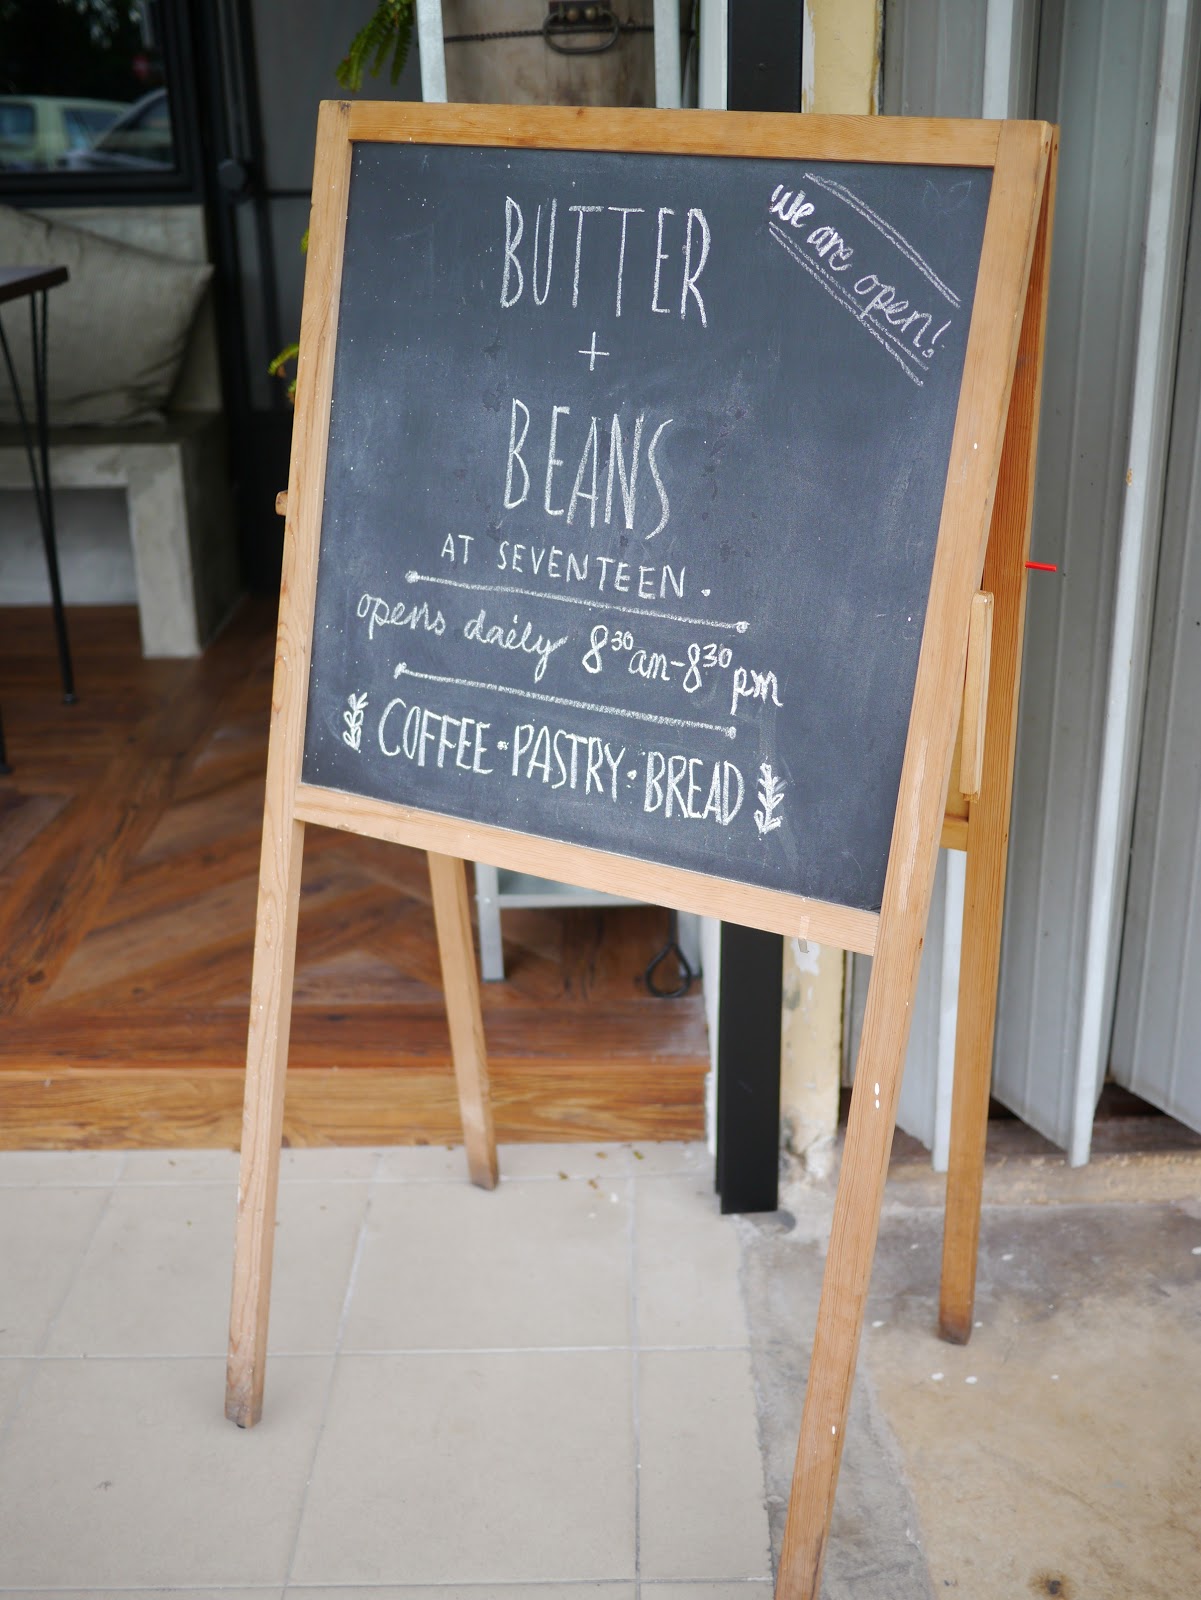 We are open!
BUTTER
+
BEANS
AT SEVENTEEN.
opens daily 8³⁰am-8³⁰pm
COFFEE • PASTRY • BREAD